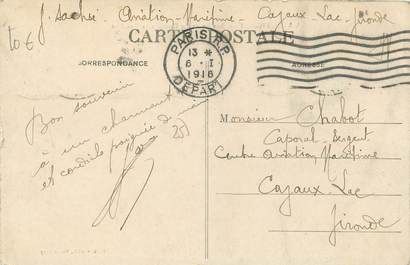 J. Sachse Aviation-Maritime, Cazaux Lac, Gironde
10 €
CARTE POSTALE
CORRESPONDANCE
ADRESSE
PARIS R.P.
13 *
6 - I
1916
DÉPART
Bon souvenir
à un charmant
et cordiale poignée de main
25
Monsieur Chabot
Caporal-Sergent
Centre Aviation Maritime
Cazaux-Lac
Gironde